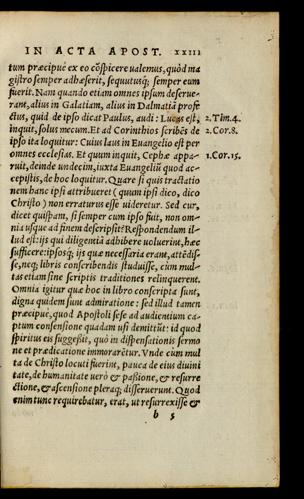 IN ACTA APOST. xxiii
tum præcipuè ex eo cōspicere ualemus, quòd ma
gistro semper adhæserit, sequutusq; semper eum
fuerit. Nam quando etiam omnes ipsum deserue-
rant, alius in Galatiam, alius in Dalmatiā profe
ctus, quid de ipso dicat Paulus, audi: Lucas est, 2.Tim.4.
inquit, solus mecum. Et ad Corinthios scribēs de 2.Cor.8.
ipso ita loquitur: Cuius laus in Euangelio est per
omnes ecclesias. Et quum inquit, Cephæ appa- 1.Cor.15.
ruit, deinde undecim, iuxta Euangeliū quod ac-
cepistis, de hoc loquitur. Quare si quis tractatio
nem hanc ipsi attribueret (quum ipsi dico, dico
Christo) non erraturus esse uideretur. Sed cur,
dicet quispam, si semper cum ipso fuit, non om-
nia usque ad finem descripsit? Respondendum il-
lud est: ijs qui diligentiā adhibere uoluerint, hæc
sufficere: ipsosq; ijs quæ necessaria erant, attēdis-
se, neq; libris conscribendis studuisse, cùm mul-
tas etiam sine scriptis traditiones relinquerent.
Omnia igitur quæ hoc in libro conscripta sunt,
digna quidem sunt admiratione: sed illud tamen
præcipuè, quod Apostoli sese ad audientium ca-
ptum consensione quadam usi demittūt: id quod
spiritus eis suggessit, quò in dispensationis sermo
ne et prædicatione immorarētur. Vnde cum mul
ta de Christo locuti fuerint, pauca de eius diuini
tate, de humanitate uerò & passione, & resurre
ctione, & ascensione pleraq; disseruerunt. Quod
enim tunc requirebatur, erat, ut resurrexisse &
b 5